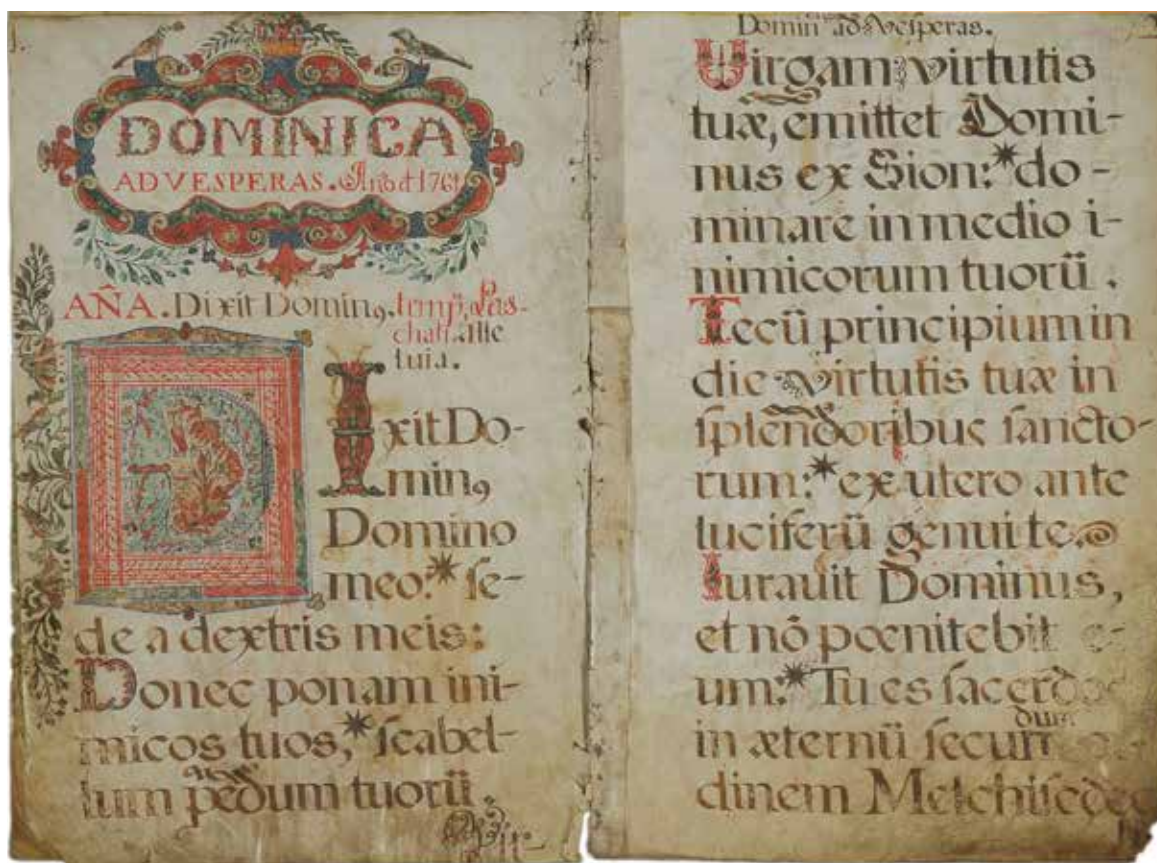 DOMINICA
AD VESPERAS. Año d 1761
AÑA. Dixit Dominꝰ. temp. Pas-
chali. Alle
luia.
DIxit Do-
minꝰ
Domino
meo: * ſe-
de a dextris meis:
Donec ponam ini-
micos tuos, * ſcabel-
lum pedum tuorũ.
Vir-
Domin ad Veſperas.
Uirgam virtutis
tuæ, emittet Domi-
nus ex Sion: * do-
minare in medio i-
nimicorum tuorũ.
Tecũ principium in
die virtutis tuæ in
ſplendoribus ſancto-
rum: * ex utero ante
luciferũ genui te.
Iurauit Dominus,
et nõ pœnitebit e-
um: * Tu es ſacerdos
dum
in æternũ ſecun or-
dinem Melchiſedec